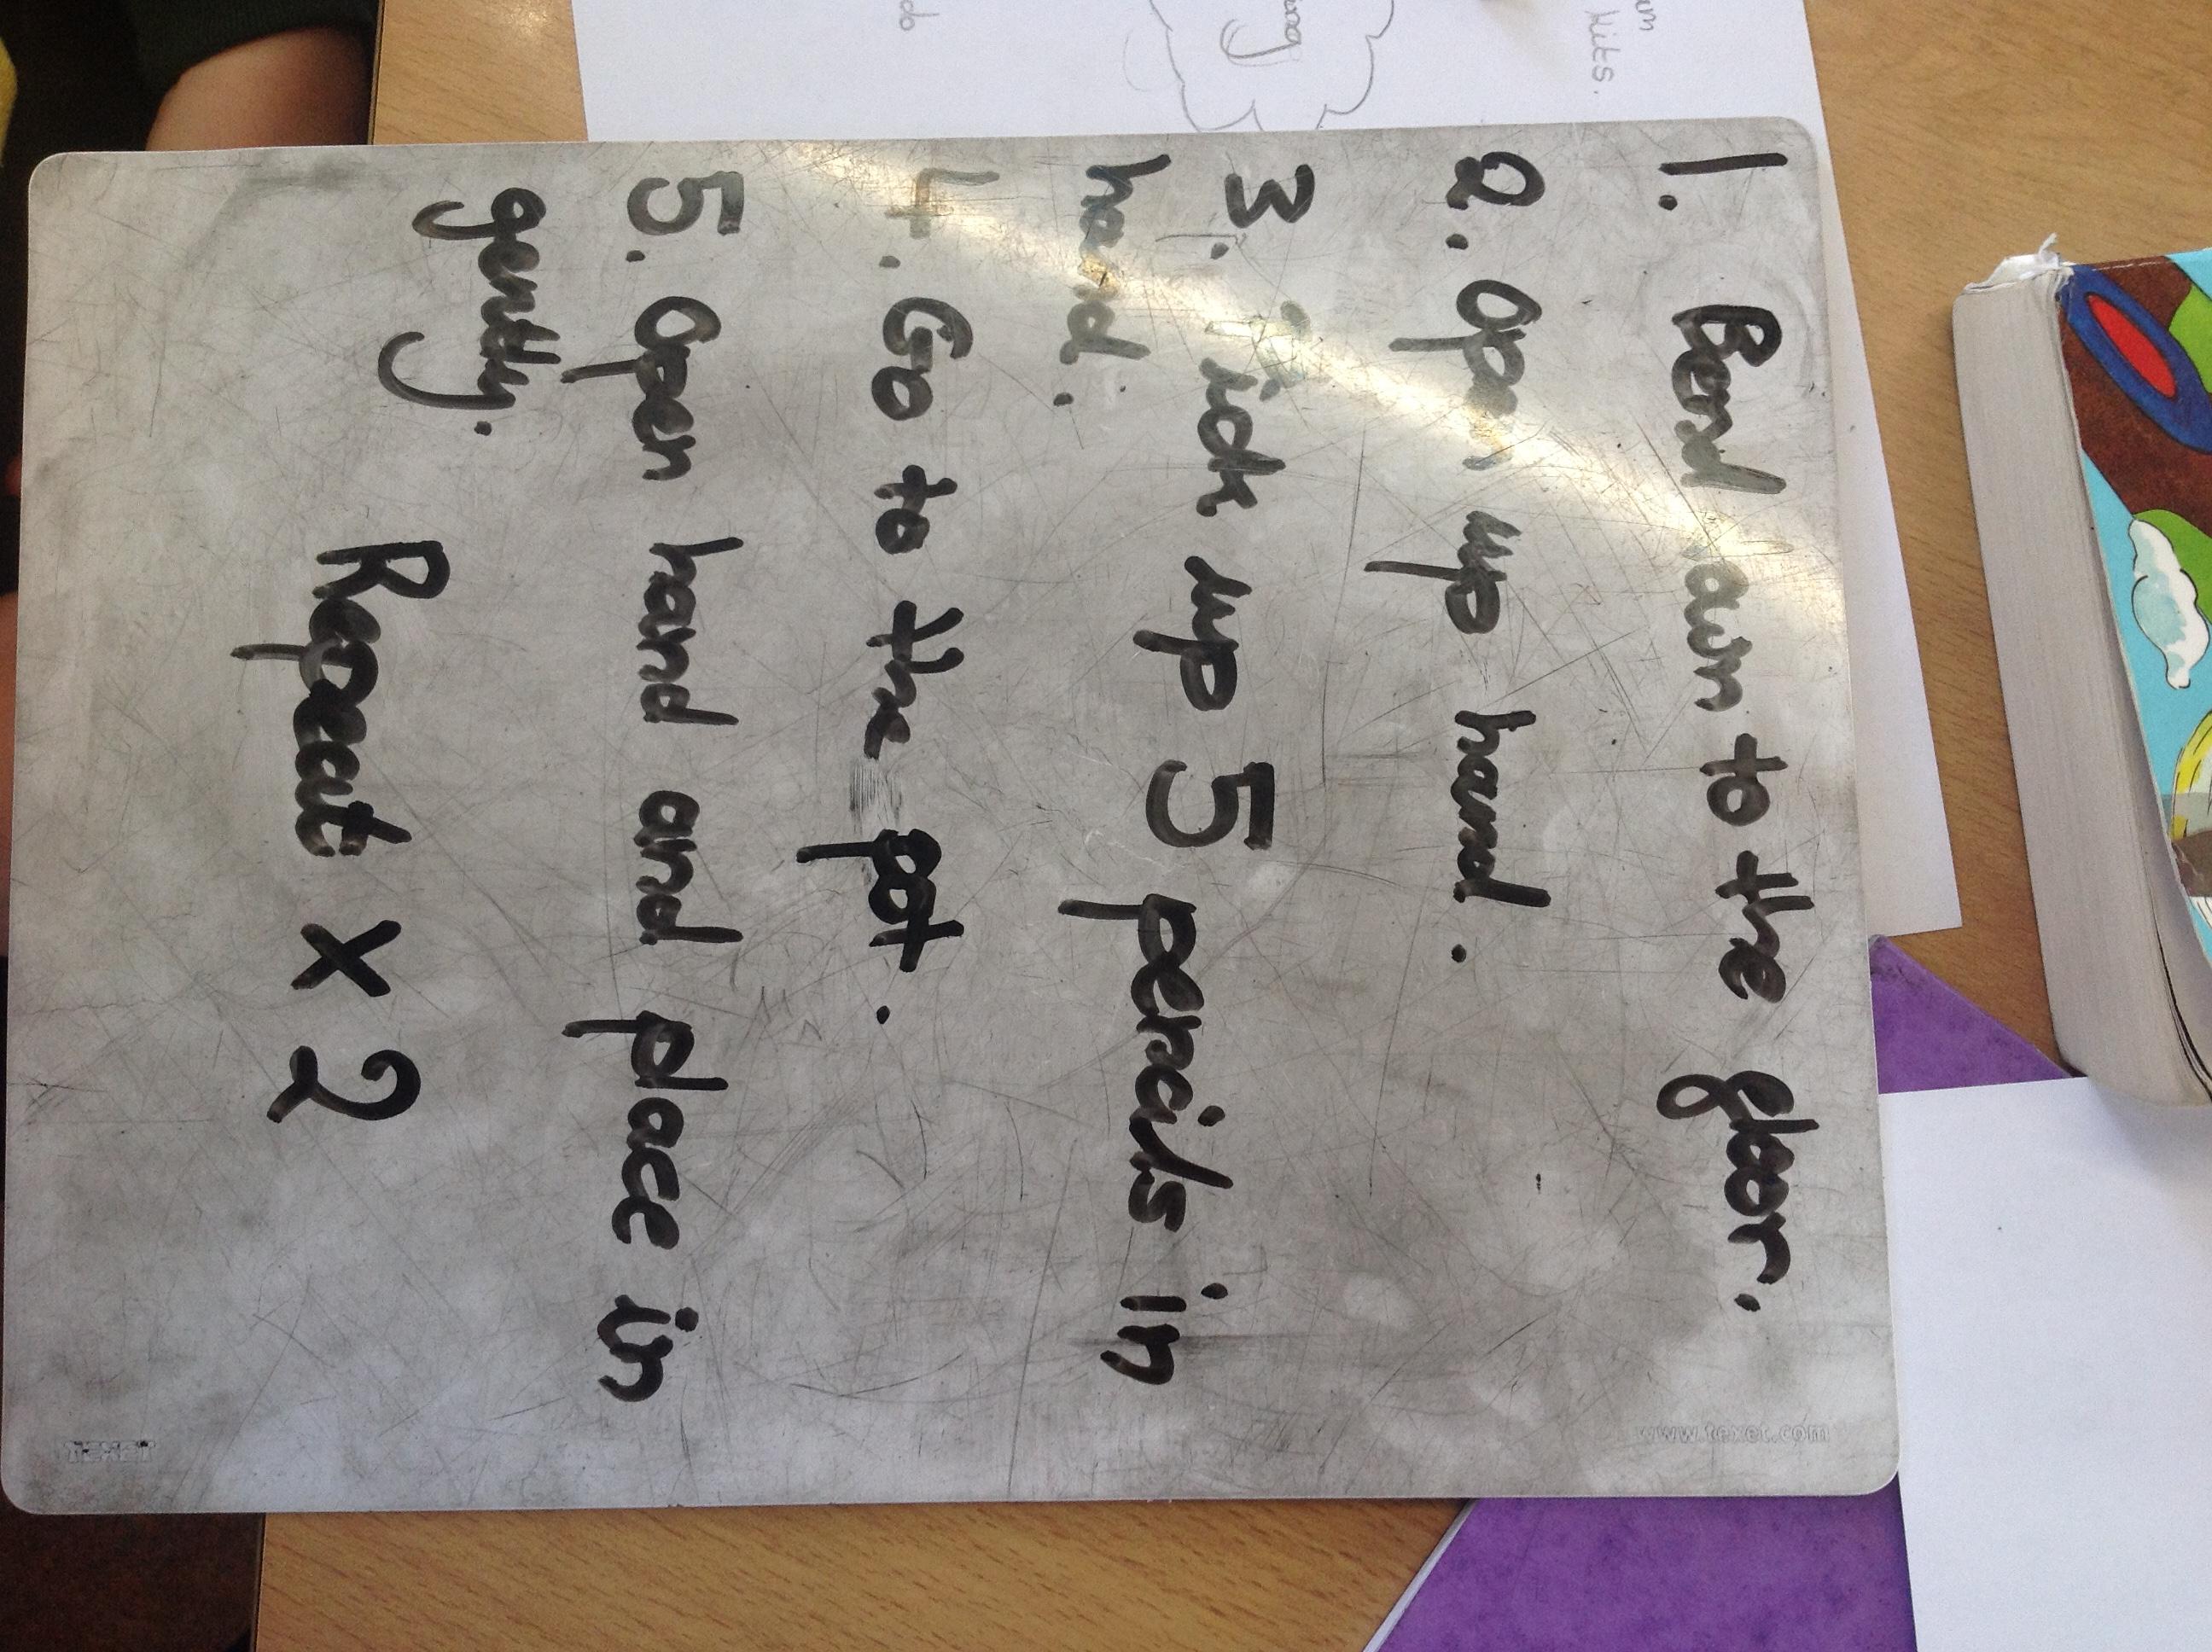 1. Bend down to the floor.
2. Open up hand.
3. Pick up 5 pencils in
hand.
4. Go to the pot.
5. Open hand and place in
gently.
Repeat x 2
www.texet.com
TEXET
kits.
do